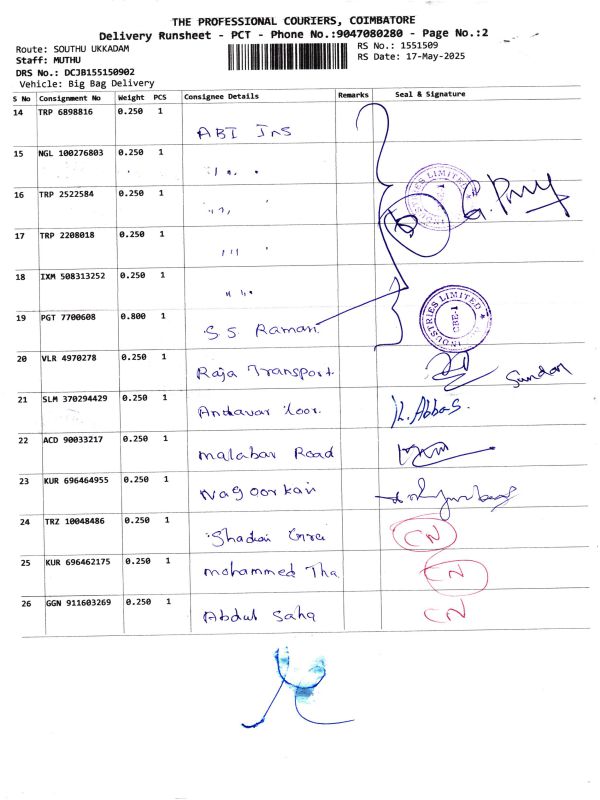 THE PROFESSIONAL COURIERS, COIMBATORE
Delivery Runsheet - PCT - Phone No.:9047080280 - Page No.:2
Route: SOUTHU UKKADAM
Staff: MUTHU
DRS No.: DCJB155150902
Vehicle: Big Bag Delivery
RS No.: 1551509
RS Date: 17-May-2025
S No Consignment No Weight PCS Consignee Details Remarks Seal & Signature
14 TRP 6898816 0.250 1 ABI Ins
15 NGL 100276803 0.250 1 " "
16 TRP 2522584 0.250 1 " "
17 TRP 2208018 0.250 1 " "
18 IXM 508313252 0.250 1 " "
19 PGT 7700608 0.800 1 S.S. Raman
INDUSTRIES LIMITED CBE-1
20 VLR 4970278 0.250 1 Raja Transport. Sundar
21 SLM 370294429 0.250 1 Andavar K. Abbas.
22 ACD 90033217 0.250 1 malabar Road
23 KUR 696464955 0.250 1 Nagoorkani
24 TRZ 10048486 0.250 1 CN
25 KUR 696462175 0.250 1 mohammed Tha CN
26 GGN 911603269 0.250 1 Abdul Saha CN